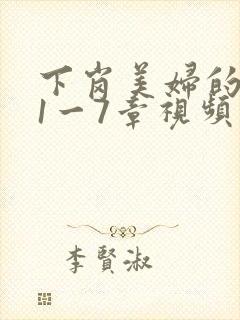 下岗美婦的
1一7章視頻
李賢淑